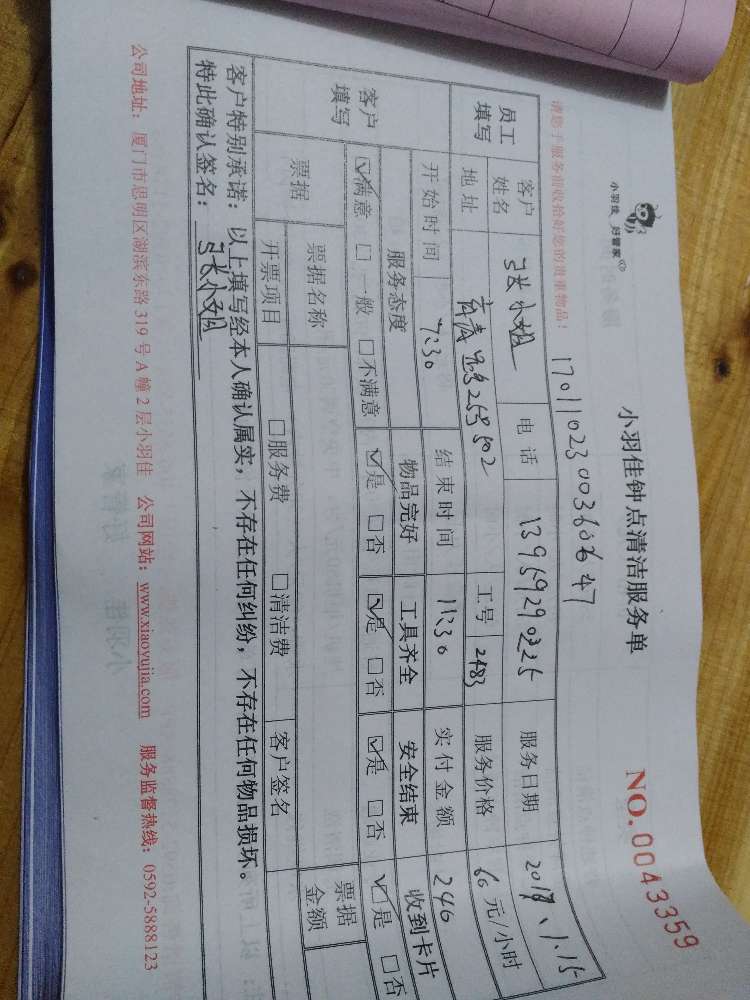 小羽佳 好管家
小羽佳钟点清洁服务单
NO. 0043359
请您于服务前收拾好您的贵重物品!
员工填写 客户姓名 张小姐 电话 13959290225 服务日期 2018、1.15
地址 工号 2483 服务价格 60 元/小时
开始时间 7:30 结束时间 11:30 实付金额 240
客户填写 服务态度 物品完好 工具齐全 安全结束 收到卡片
☑满意 □一般 □不满意 ☑是 □否 ☑是 □否 ☑是 □否 ☑是 □否
票据 票据名称 票据金额
开票项目 □服务费 □清洁费 客户签名
客户特别承诺:以上填写经本人确认属实,不存在任何纠纷,不存在任何物品损坏。
特此确认签名:张小姐
公司地址:厦门市思明区湖滨东路 319 号 A 幢 2 层小羽佳 公司网站:www.xiaoyujia.com 服务监督热线:0592-5888123